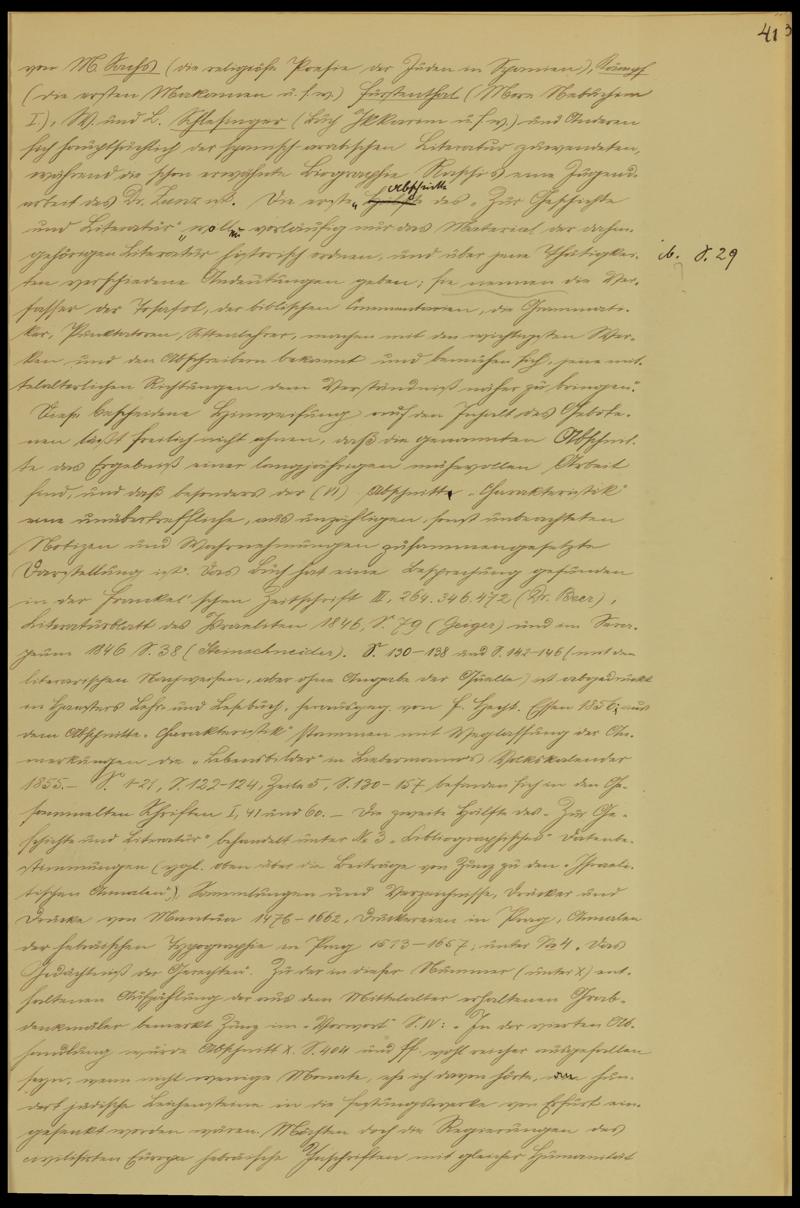 41
von M. Sachs (die religiöse Poesie der Juden in Spanien), Kämpf
(die ersten Makamen u. s. w.) Fürstenthal (More Nebuchim
I.), W. und L. Schlesinger (Buch Ikkarim u. s. w.) und Anderen
sich hauptsächlich der spanisch-arabischen Literatur zuwendeten,
während die schon erwähnte Biographie Raschi's eine Jugend-
arbeit des Dr. Zunz ist. Die ersten Abschnitte des „Zur Geschichte
und Literatur" wollen vorläufig nur das Material der dahin
gehörigen Literatur historisch ordnen, und über jene Thätigkei-
ib. S. 29
ten verschiedene Andeutungen geben; sie nennen die Ver-
fasser der Tosafot, der biblischen Commentarien, die Grammati-
ker, Punktatoren, Sittenlehrer, machen mit den wichtigsten Wer-
ken und den Abschreibern bekannt und bemühen sich, jene mit-
telalterlichen Richtungen dem Verständniß näher zu bringen."
Diese bescheidene Hinweisung auf den Inhalt des Gebote-
nen läßt freilich nicht ahnen, daß die genannten Abschnit-
te das Ergebniß einer langjährigen mühevollen Arbeit
sind, und daß besonders der (VI) Abschnitt „Charakteristik"
eine unübertreffliche, aus unzähligen, sonst unbeachteten
Notizen und Wahrnehmungen zusammengesetzte
Darstellung ist. Das Buch hat eine Besprechung gefunden
in der Frankel'schen Zeitschrift III, 264. 346. 472 (Dr. Beer),
Literaturblatt des Israeliten 1846, S. 79 (Geiger) und im Sera-
peum 1846 S. 38 (Steinschneider). S. 130–138 und S. 142–146 (mit den
literarischen Nachweisen, aber ohne Angabe der Quelle) ist abgedruckt
in Haesters Lehr- und Lesebuch, herausgeg. von F. Hecht. Essen 1856; aus
dem Abschnitte „Charakteristik" stammen mit Weglassung der An-
merkungen die „Lebensbilder" in Liebermanns Volkskalender
1855.— S. 1–21, S. 122–124, Zeile 5, S. 130–157 befinden sich in den Ge-
sammelten Schriften I, 41 und 60. — Die zweite Hälfte des „Zur Ge-
schichte und Literatur" behandelt unter № 3 „Bibliographisches" Datenbe-
stimmungen (vgl. oben über die Beiträge von Zunz zu den „Israeli-
tischen Annalen"), Sammlungen und Verzeichnisse, Drucker und
Drucke von Mantua 1476–1662, Druckereien in Prag, Annalen
der hebräischen Typographie in Prag 1513–1657; unter № 4 „Das
Gedächtniß der Gerechten". Zu der in dieser Nummer (unter X) ent-
haltenen Aufzählung der aus dem Mittelalter erhaltenen Grab-
denkmäler bemerkt Zunz im „Vorwort" S. IV: „In der vierten Ab-
handlung würde Abschnitt X. S. 404 und ff. wohl reicher ausgefallen
seyn, wenn nicht wenige Monate, ehe ich davon hörte, an hun-
dert jüdische Leichensteine in die Festungswerke von Erfurt ein-
gesenkt worden wären. Möchten doch die Regierungen des
civilisirten Europa hebräische Inschriften mit gleicher Humanität